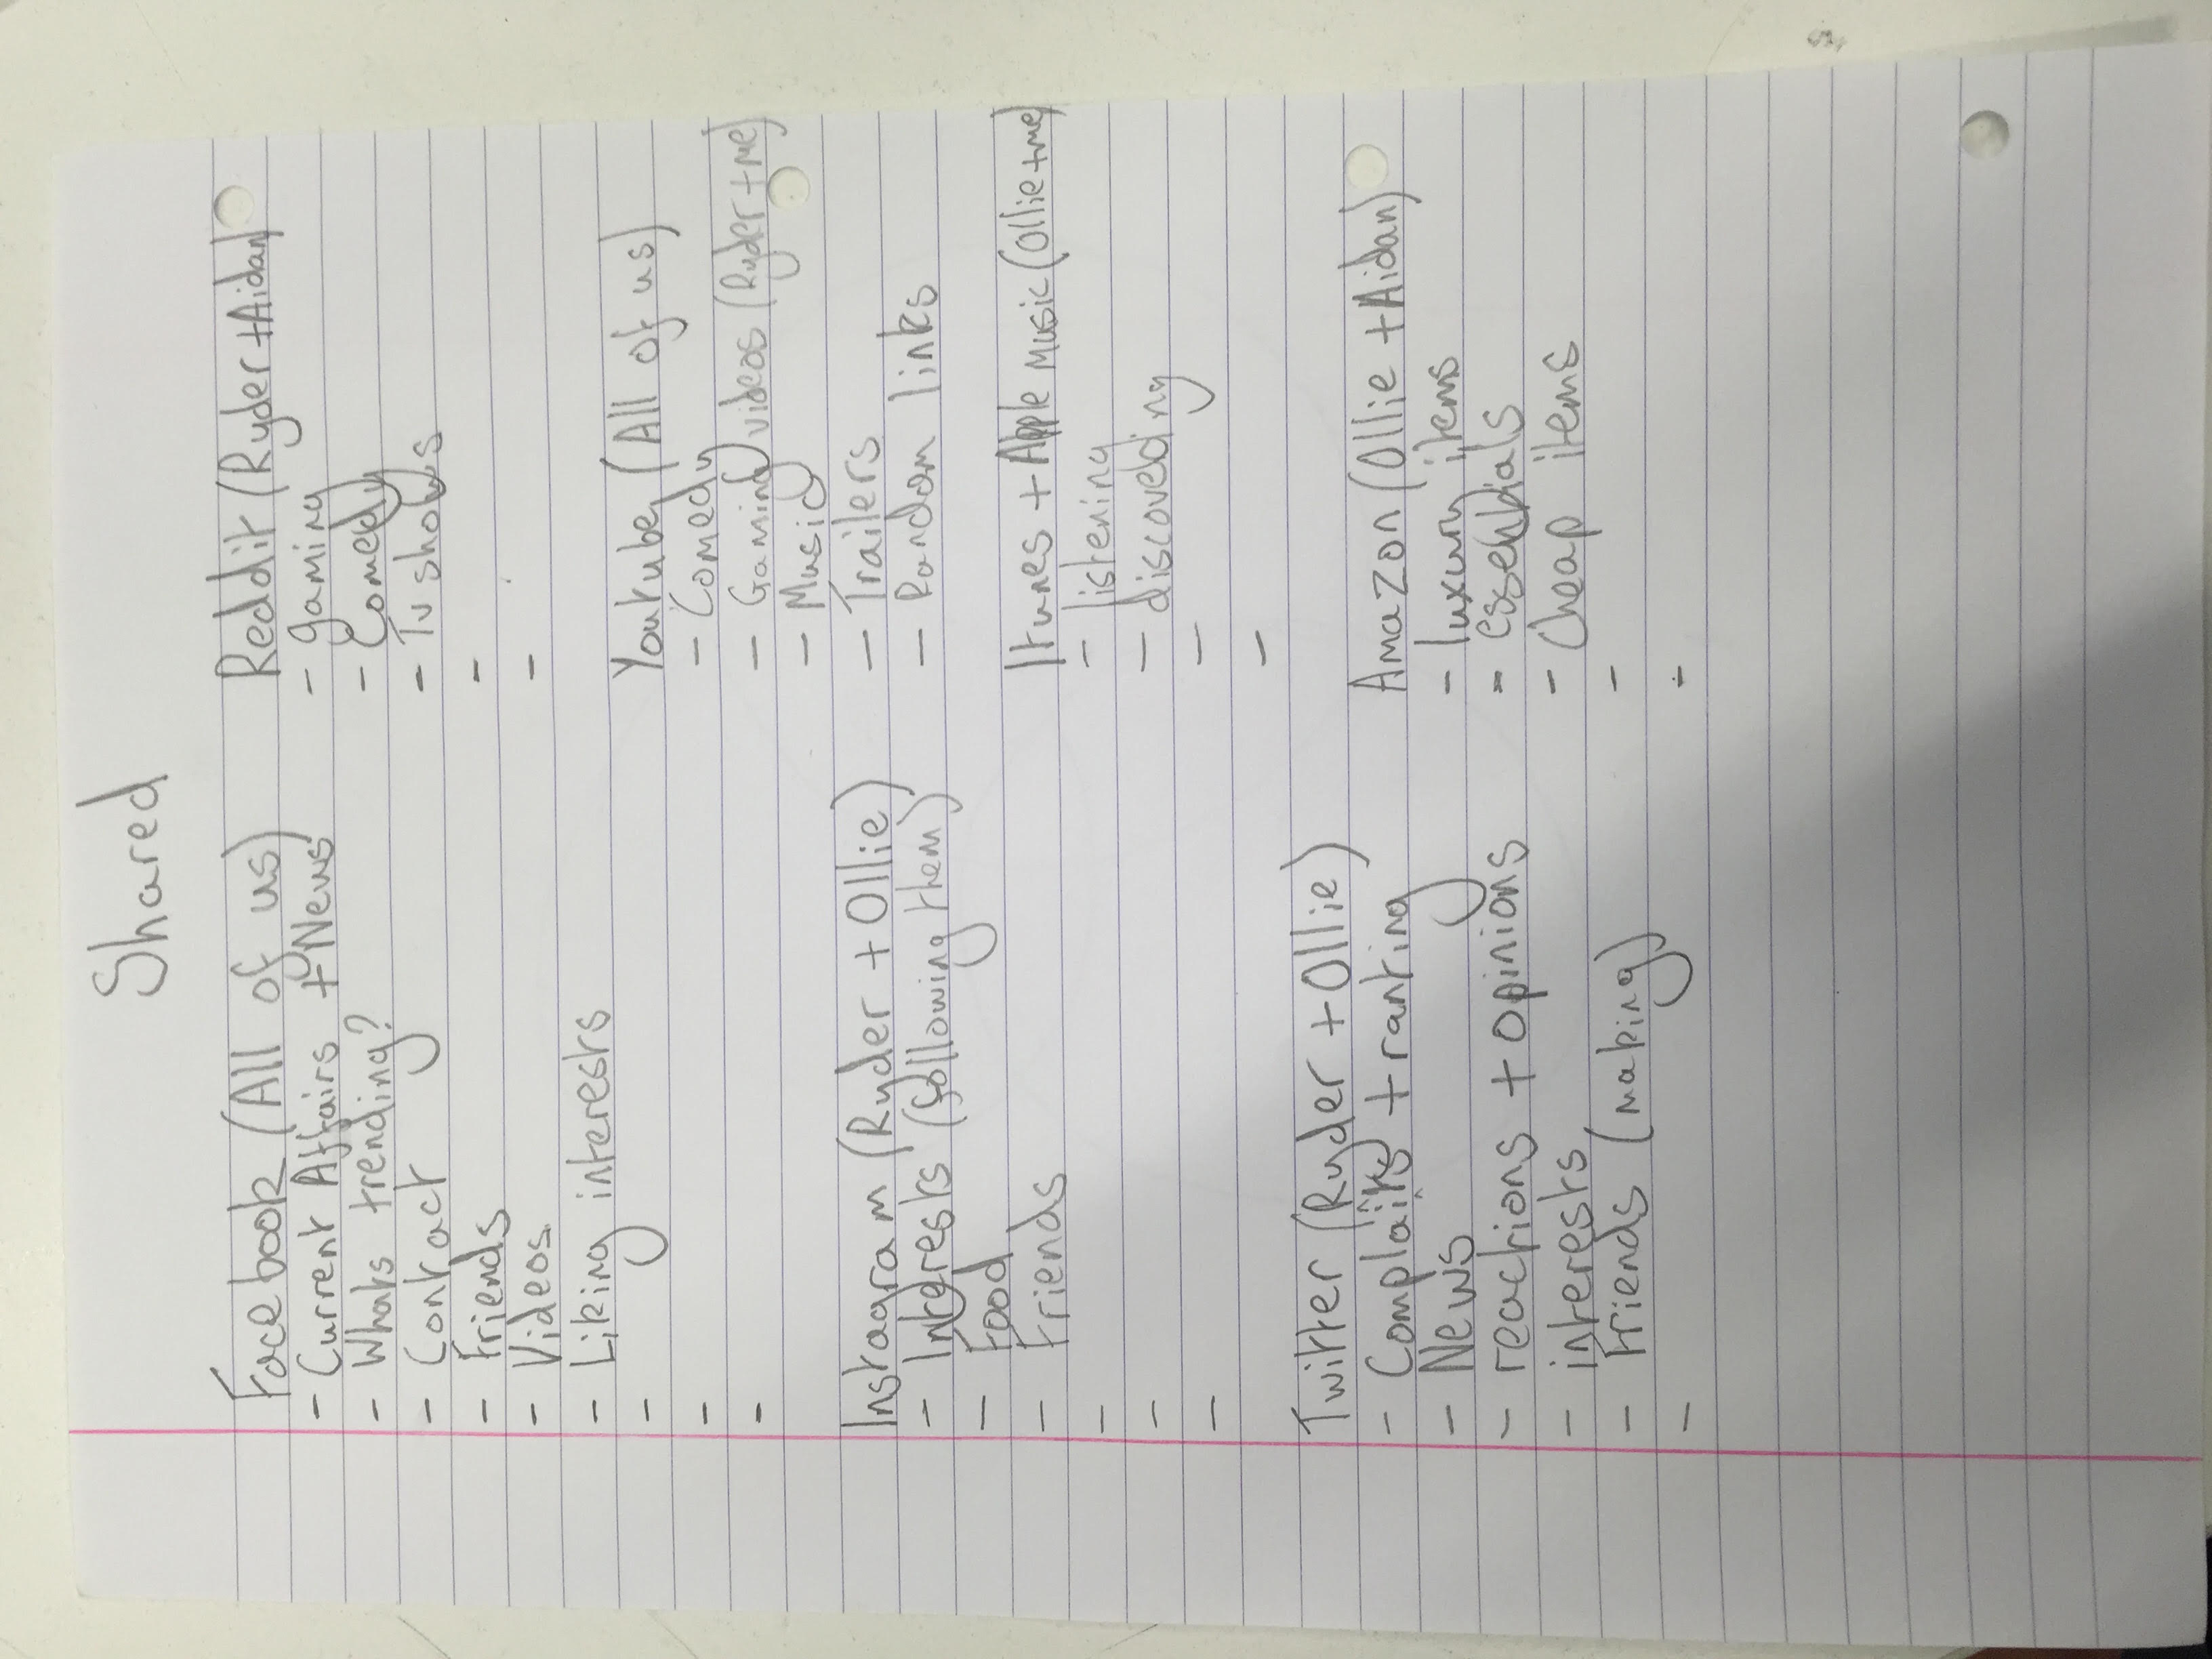 Shared
Facebook (All of us)
- Current Affairs + News
- Whats trending?
- Contact
- Friends
- Videos
- Liking interests
-
-
-
Instagram (Ryder + Ollie)
- Interests (following them)
- Food
- Friends
-
-
-
Twitter (Ryder + Ollie)
- Complaints + ranting
- News
- reactions + Opinions
- interests
- Friends (making)
-
Reddit (Ryder + Aidan)
- gaming
- Comedy
- Tv shows
-
-
Youtube (All of us)
- Comedy
- Gaming videos (Ryder + me)
- Music
- Trailers
- Random links
Itunes + Apple Music (Ollie + me)
- listening
- discovering
-
-
Amazon (Ollie + Aidan)
- luxury items
- essentials
- Cheap items
-
-